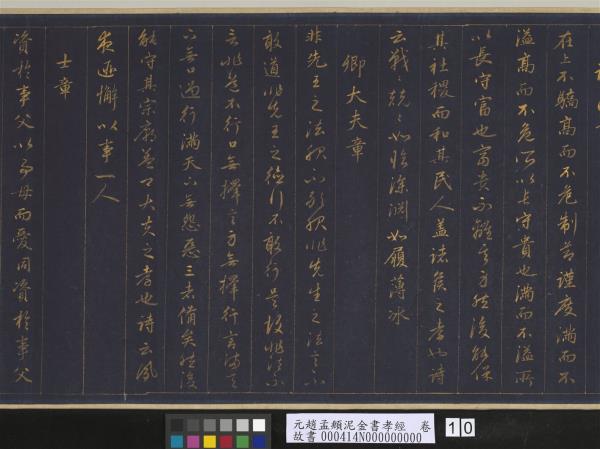 在上不驕高而不危制節謹度滿而不
溢高而不危所以長守貴也滿而不溢所
以長守富也富貴不離其身然後能保
其社稷而和其民人蓋諸侯之孝也詩
云戰〻兢〻如臨深淵如履薄冰
卿大夫章
非先王之法服不敢服非先王之法言不
敢道非先王之德行不敢行是故非法不
言非道不行口無擇言身無擇行言滿天
下無口過行滿天下無怨惡三者備矣然後
能守其宗廟蓋卿大夫之孝也詩云夙
夜匪懈以事一人
士章
資於事父以事母而愛同資於事父
元趙孟頫泥金書孝經 卷
故書000414N000000000
10